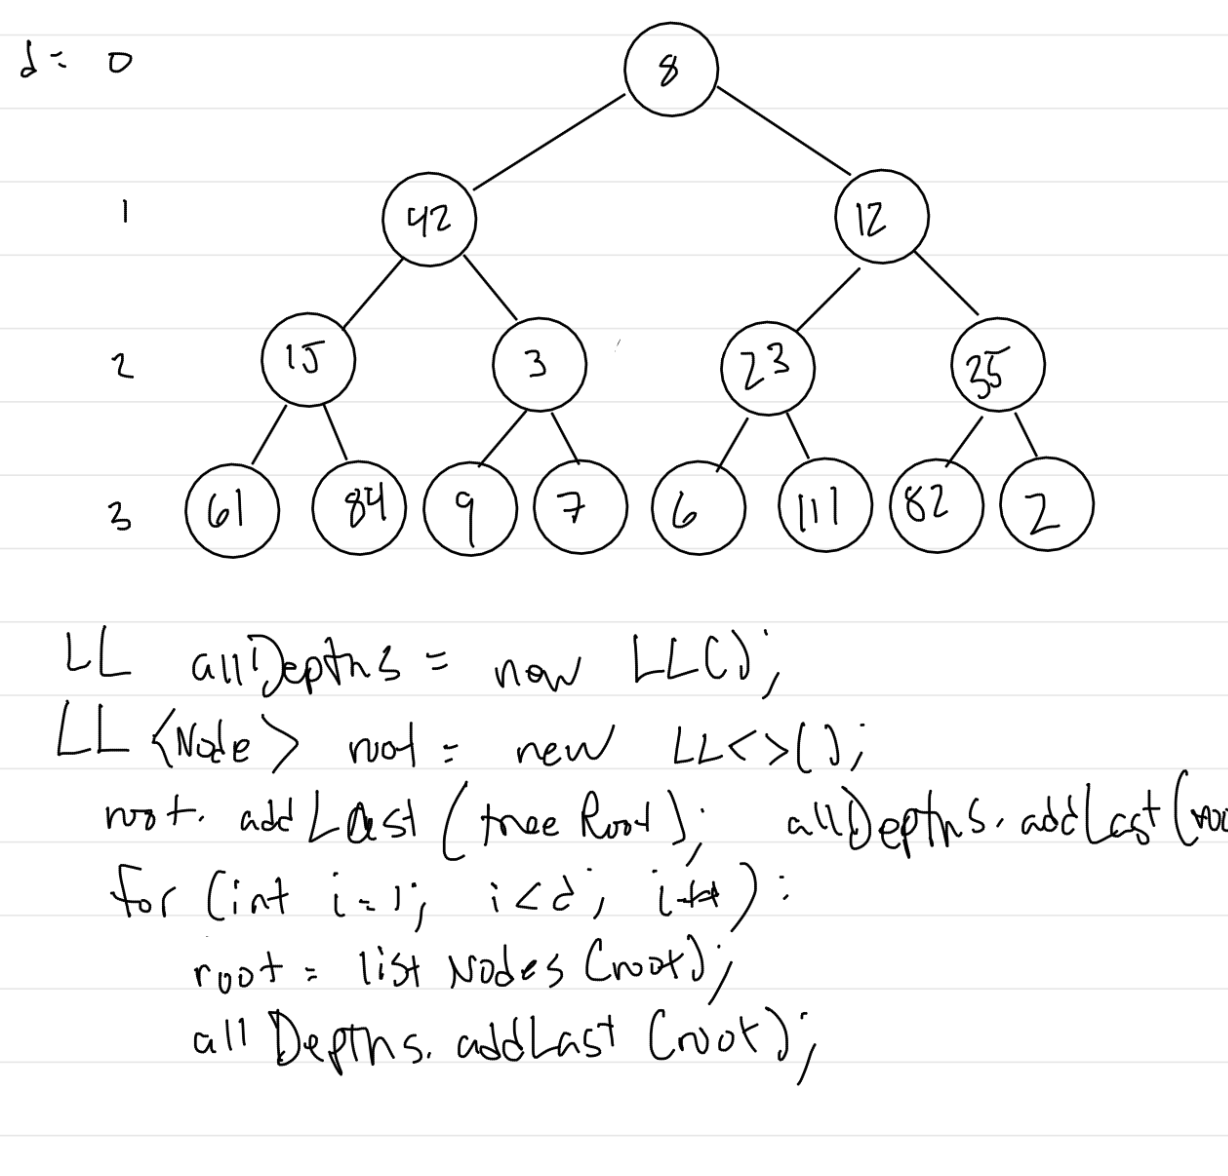 d = 0
8
1
42 12
2
15 3 23 35
3
61 84 9 7 6 111 82 2
LL allDepths = new LL();
LL <Node> root = new LL<>();
root. addLast (tree Root); allDepths. addLast (roo
for (int i=1; i<d; i++) :
root = list Nodes (root);
all Depths. addLast (root);